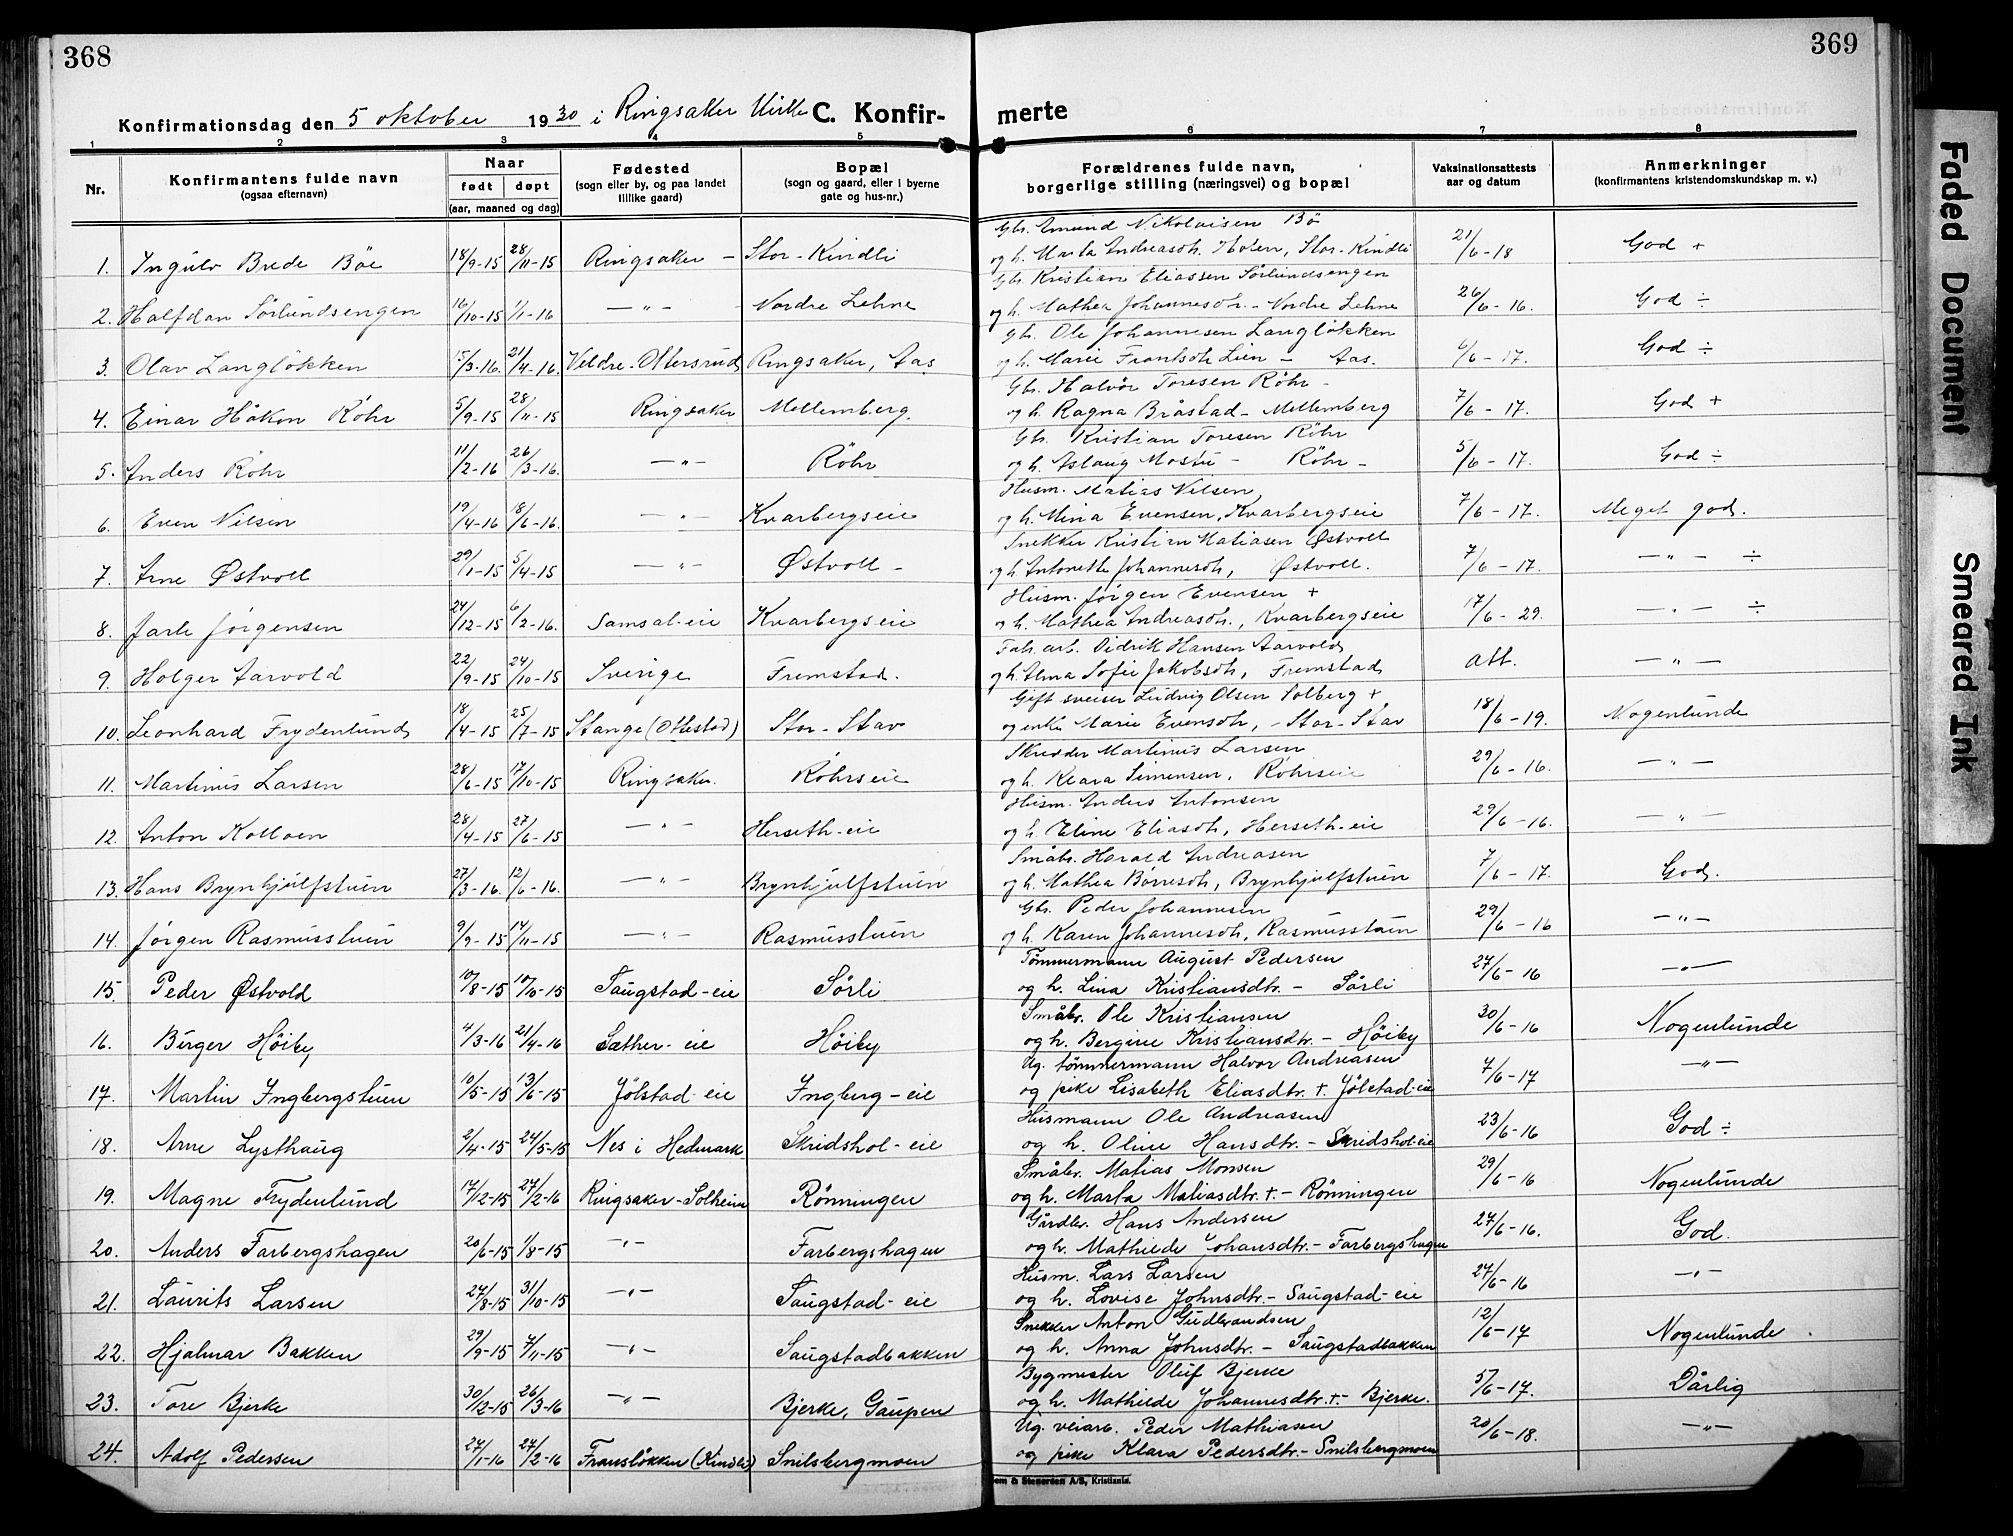 368
369
Konfirmationsdag den 5 oktober 1930 i Ringsaker Kirke C. Konfir- merte
1 2 3 4 5 6 7 8
Nr. Konfirmantens fulde navn (ogsaa efternavn) Naar født døpt (aar, maaned og dag) Fødested (sogn eller by, og paa landet tillike gaard) Bopæl (sogn og gaard, eller i byerne gate og hus-nr.) Forældrenes fulde navn, borgerlige stilling (næringsvei) og bopæl Vaksinationsattests aar og datum Anmerkninger (konfirmantens kristendomskundskap m. v.)
Gbr. Amund Nikolaisen Bø
1. Ingulv Brede Böe 18/9-15 28/11-15 Ringsaker – Stor-Kindli og h. Marta Andreasdtr. Holen, Stor-Kindli 21/6-18 God +
Gbr. Kristian Eliassen Sörlundsengen
2. Halfdan Sörlundsengen 16/10-15 1/1-16 —"— Nordre Lehne og h. Mathea Johannesdtr. – Nordre Lehne 26/6-16. God ÷
Gbr. Ole Johannesen Langlökken
3. Olav Langlökken 15/3-16. 21/4-16. Veldre-Attersrud Ringsaker, Aas og h. Marie Frantsdtr. Lien – Aas. 6/6-17. God ÷
Gbr. Halvor Toresen Röhr –
4. Einar Håkon Röhr 5/9-15 28/11-15 Ringsaker Mellemberg. og h. Ragna Bråstad – Mellemberg 7/6-17. God +
Gbr. Kristian Toresen Röhr
5. Anders Röhr 11/2-16 26/3-16. —"— Röhr og h. Aslaug Mostu – Röhr – 5/6-17. God ÷
Husm. Matias Nilsen,
6. Even Nilsen 19/4-16 18/6-16. —"— Kvarbergseie og h. Mina Evensen, Kvarbergseie 7/6-17. Meget god.
Snekker Kristian Matiasen Østvoll
7. Arne Østvoll 29/1-15 5/4-15 —"— Østvoll – og h. Antonette Johannesdtr, Østvoll. 7/6-17. —"— ÷
Husm. Jørgen Evensen +
8. Jarle Jørgensen 24/12-15 6/2-16. Samsal-eie Kvarbergseie og h. Mathea Andreasdtr., Kvarbergseie 17/6-29. —"— ÷
Fab. arb. Didrik Hansen Aarvold
9. Holger Aarvold 22/9-15 24/10-15 Sverige Fremstad. og h. Alma Sofie Jakobsdtr, Fremstad att. —"—
Gift sveiser Ludvig Olsen Solberg +
10. Leonhard Frydenlund 18/4-15 25/7-15 Stange (Ottestad) Stor-Stav og enke Marie Evensdtr, – Stor-Stav 18/6-19. Nogenlunde
Skredder Martinus Larsen
11. Martinus Larsen 28/6-15 17/10-15 Ringsaker. Röhrseie og h. Klara Simensen, Röhrseie 29/6-16. —"—
Husm. Anders Antonsen
12. Anton Kolloen 28/4-15 27/6-15 —"— Herseth-eie og h. Eline Eliasdtr, Herseth-eie 29/6-16. —"—
Småbr. Harald Andreasen
13. Hans Brynhjulfstuen 27/3-16. 12/6-16. —"— Brynhjulfstuen og h. Mathea Börresdtr, Brynhjulfstuen 7/6-17. God.
Gbr. Peder Johannesen
14. Jørgen Rasmusstuen 9/9-15 14/11-15 —"— Rasmusstuen og h. Karen Johannesdtr, Rasmusstuen 29/6-16 —"—
Tömmermann August Pedersen
15. Peder Østvold 10/8-15 10/10-15 Saugstad-eie Sörli og h. Lina Kristiansdtr. – Sörli 27/6-16 —"—
Småbr. Ole Kristiansen
16. Birger Höiby 4/3-16 21/4-16 Sæther-eie Höiby og h. Bergine Kristiansdtr. – Höiby 30/6-16 Nogenlunde
Ug. tömmermann Halvor Andreasen
17. Martin Ingbergstuen 10/5-15 13/6-15 Jölstad-eie Ingberg-eie og pike Lisabeth Eliasdtr. + Jölstad-eie 7/6-17 —"—
Husmann Ole Andreasen
18. Arne Lysthaug 2/4-15 24/5-15 Nes i Hedmark Skridshol-eie og h. Oline Hansdtr. – Skridshol-eie 23/6-16 God ÷
Småbr. Matias Monsen
19. Magne Frydenlund 17/12-15 27/2-16 Ringsaker-Solheim Rönningen og h. Marta Matiasdtr. + – Rönningen 29/6-16 Nogenlunde
Gårdbr. Hans Andersen
20. Anders Farbergshagen 20/6-15 1/8-15 —"— Farbergshagen og h. Mathilde Johansdtr. – Farbergshagen 27/6-16. God.
Husm. Lars Larsen
21. Laurits Larsen 27/8-15 31/10-15 —"— Saugstad-eie og h. Lovise Johnsdtr. – Saugstad-eie 27/6-16 —"—
Snekker Anton Gudbrandsen
22. Hjalmar Bakken 29/9-15 7/11-15 —"— Saugstadbakken og h. Anna Johnsdtr. – Saugstadbakken 12/6-17 Nogenlunde.
Bygmester Oluf Bjerke
23. Tore Bjerke 30/12-15 26/3-16 —"— Bjerke, Gaupen og h. Mathilde Johannesdtr. + – Bjerke. 5/6-17. Dårlig
Ug. veiarb. Peder Mathiasen
24. Adolf Pedersen 27/1-16 27/2-16 Franslökken (Kindli) Snilsbergmoen og pike Klara Pedersdtr. – Snilsbergmoen 20/6-18. —"—
& Stenersen A/S, Kristiania.
Faded Document
Smeared Ink